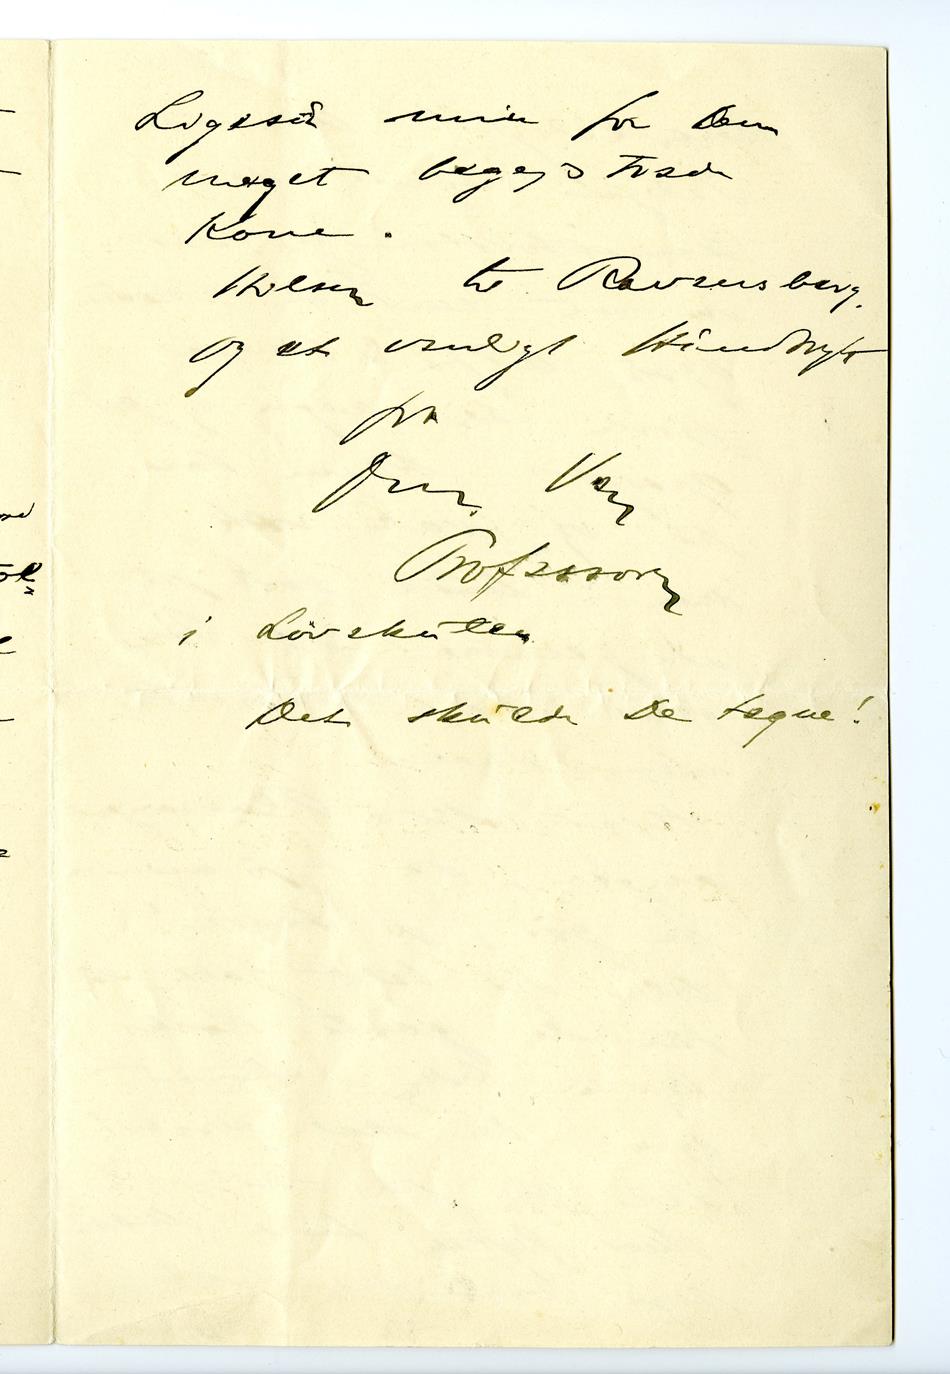 Ligeså min for Dem
meget begejstrede
Kone.
Hilsen til Ravensberg.
og et venligt Håndtryk
fra
Deres Ven
Professoren
i Løvskållen
Det skulde De tegne!